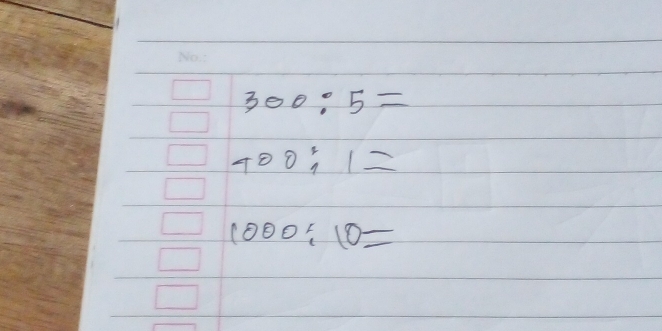 No.:
300 : 5 =
400 : 1 =
1000 : 10 =